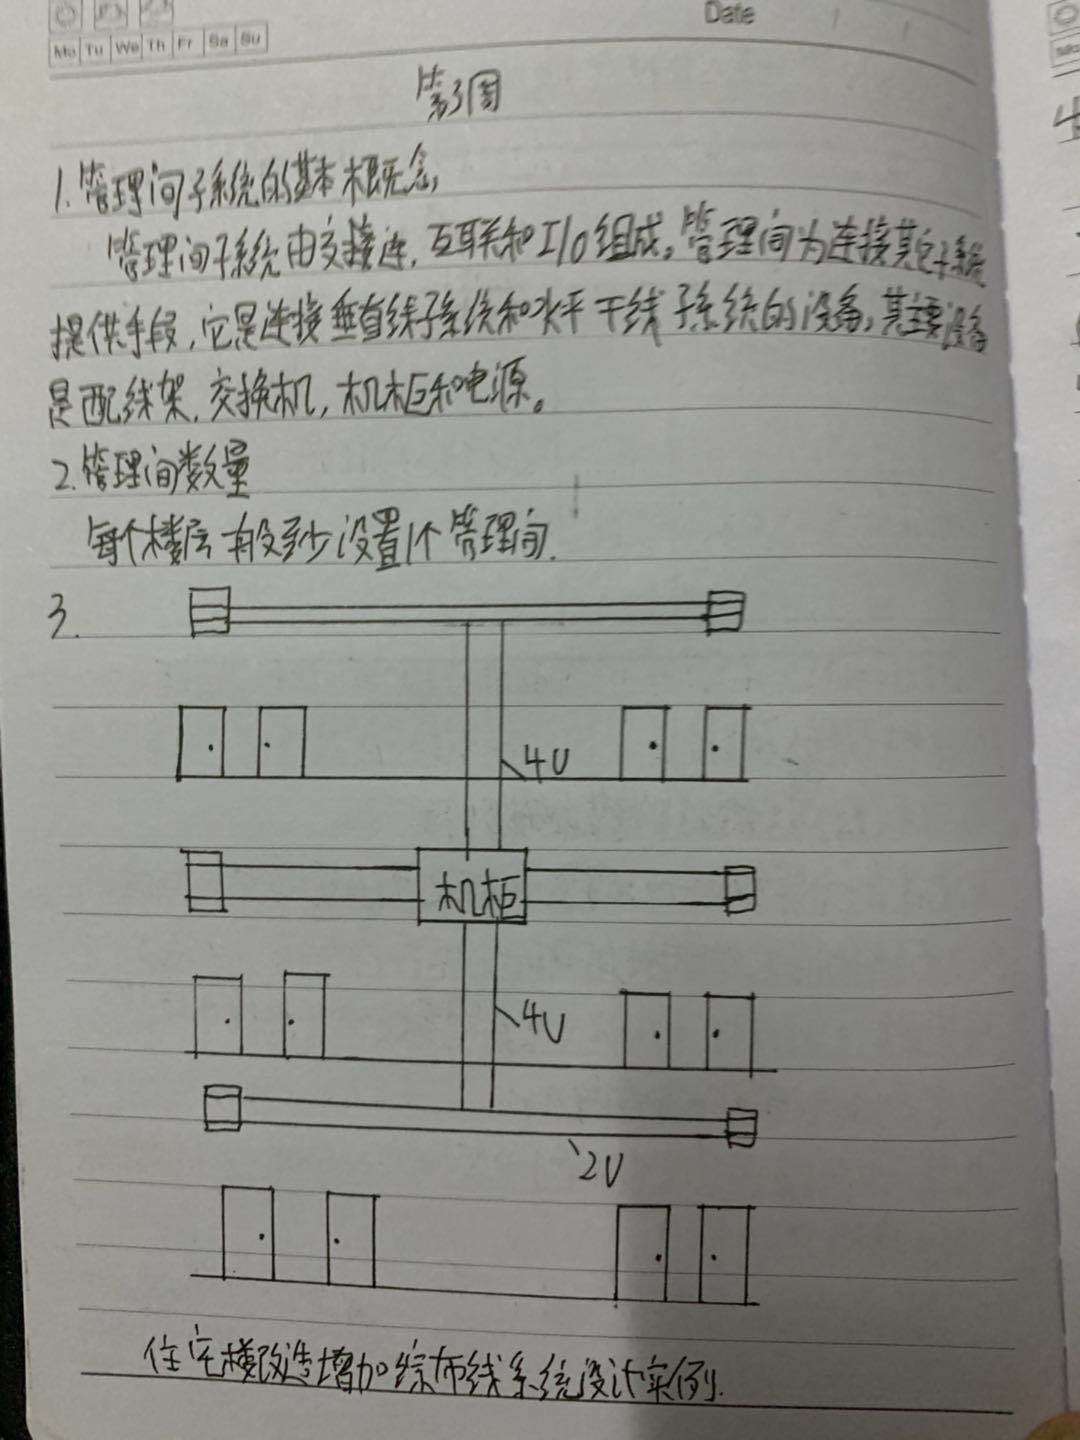 Date
Mo Tu We Th Fr Sa Su
第3周
1. 管理间子系统的基本概念,
管理间子系统由交接连, 互联和I/O组成。管理间为连接其它子系统
提供手段, 它是连接垂直线子系统和水平干线子系统的设备, 其主要设备
是配线架, 交换机, 机柜和电源。
2. 管理间数量
每个楼层一般至少设置1个管理间.
3.
4U
机柜
4U
2U
住宅楼改造增加综布线系统设计实例.